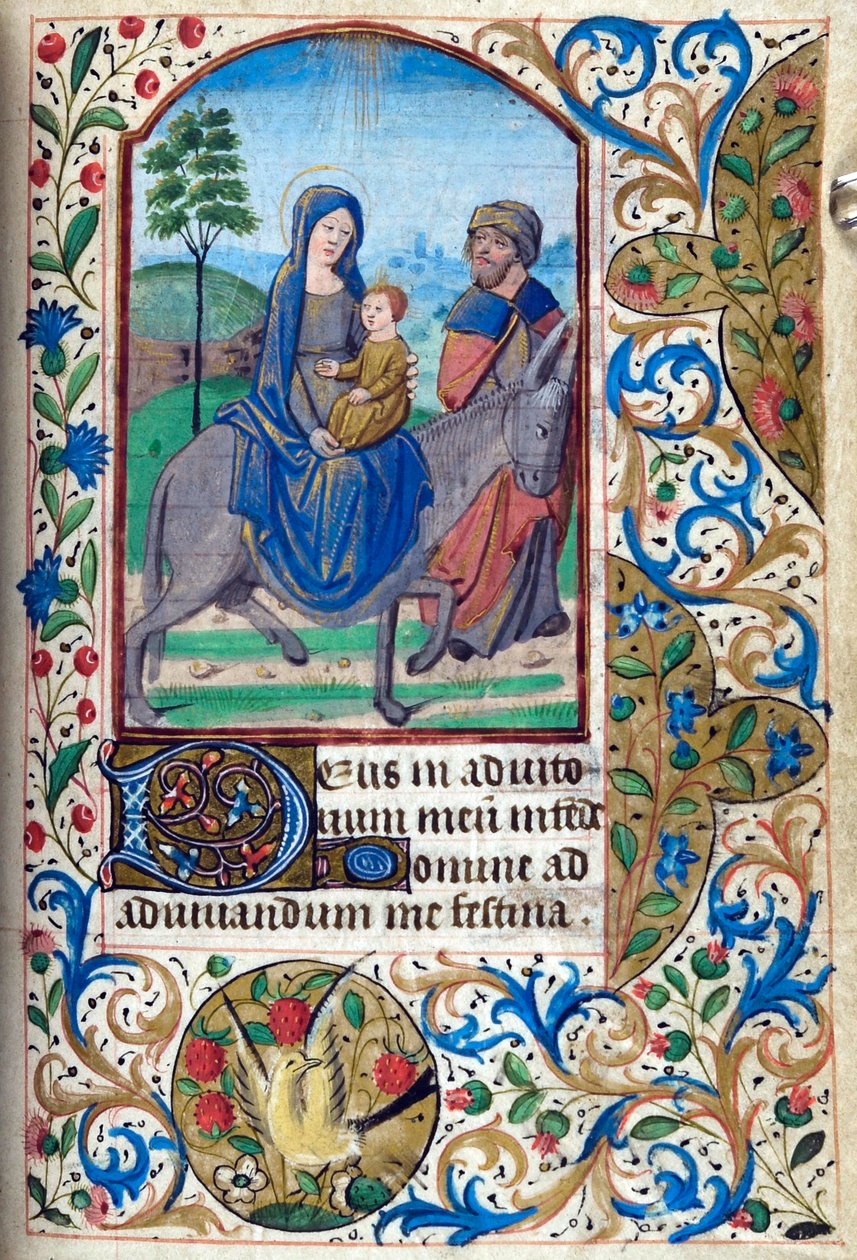 Deus in adiuto
rium meū intēde
Domine ad
adiuuandum me festina .